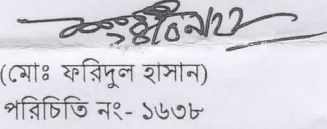 (মোঃ ফরিদুল হাসান)
পরিচিতি নং- ১৬৩৮